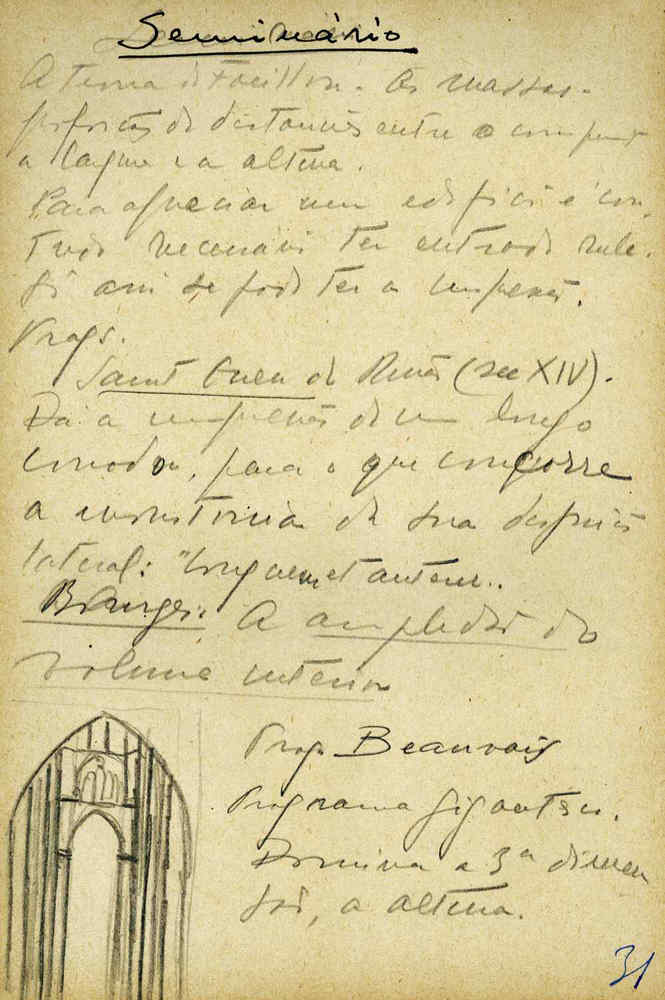 Seminário
A Teoria de Focillon. As massas.
de distancias entre o comprimento
a largura e a altura.
Para apreciar um edificio é con-
tudo necessario ter entrado nele.
Só assi se pode ter a impressão.
Prof.
Saint Ouen de Ruão (sec XIV).
Dá a impressão de um longo
corredor, para o que concorre
a monotonia de sua disposição
lateral: "longueur et auteur..
Bourges. A amplidão do
volume interior
Prof. Beauvais
Programa gigantesco.
Domina a 3ª dimen
são, a altura.
31